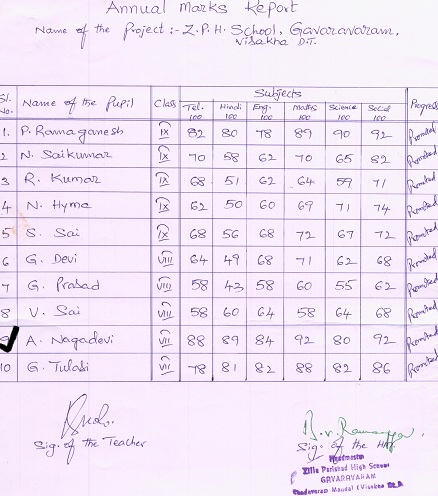 Annual Marks Report
Name of the Project :- Z.P.H. School, Gavaravaram,
Visakha DT.
Sl. No. Name of the Pupil Class Subjects Progress
Tel. 100 Hindi 100 Eng. 100 Maths 100 Science 100 Social 100
1. P. Ramaganesh IX 82 80 78 89 90 92 Promoted
2 N. Saikumar IX 70 58 62 70 65 82 Promoted
3 R. Kumar IX 68 51 62 64 59 71 Promoted
4 N. Hyma IX 62 50 60 69 71 74 Promoted
5 S. Sai IX 68 56 68 72 67 72 Promoted
6 G. Devi VIII 64 49 68 71 62 68 Promoted
7 G. Prasad VIII 58 43 58 60 55 62 Promoted
8 V. Sai VIII 58 60 64 58 64 68 Promoted
9 A. Nagadevi VII 88 89 84 92 80 92 Promoted
10 G. Tulasi VII 78 81 82 88 82 86 Promoted
Sig. of the Teacher
Sig. of the HM
Headmaster
Zilla Parishad High School
GAVARAVARAM
Mandal